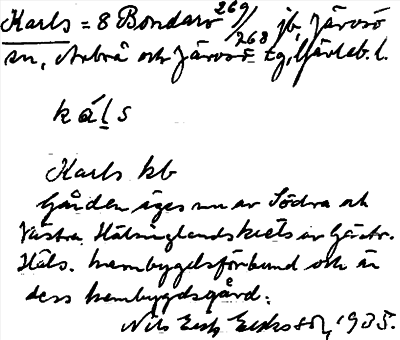 Karls = 8 Bondarv 269/268 jb, Järvsö
sn, Arbrå och Järvsö tg, Gävleb. l.
kál̲s
Karls hb
Gården äges nu av Södra och
Västra Hälsinglands krets av Gästr.
Häls. hembygdsförbund och är
dess hembygdsgård.
Nils Erik Eriksson, 1935.